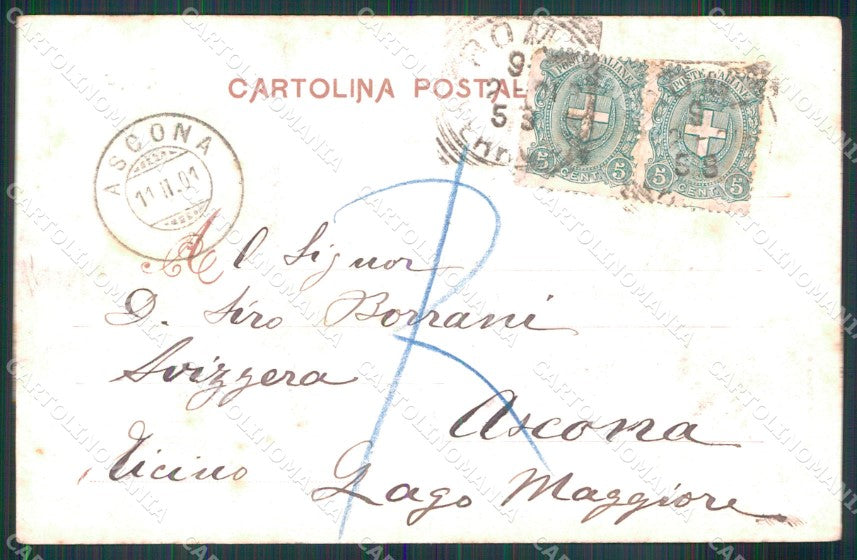 CARTOLINA POSTALE
ROMA
9
2 01
5 S
POSTE ITALIANE
5 CENT. 5
POSTE ITALIANE
5 CENT. 5
9
5 S
ASCONA
11 II.01
Al Signor
D. Siro Borrani
Svizzera
Ascona
Ticino Lago Maggiore
R
CARTOLINOMANIA